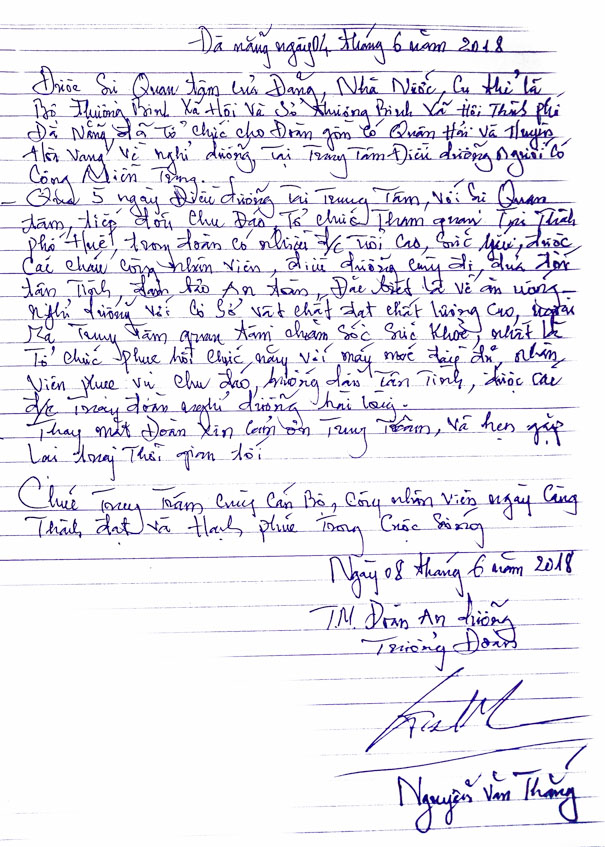 Đà nẵng ngày 04 tháng 6 năm 2018
Được Sự Quan tâm của Đảng, Nhà Nước, Cụ thể là
Bộ thương Binh Xã Hội và Sở thương Binh Xã Hội Thành phố
Đà Nẵng đã Tổ chức cho Đoàn gồm có Quận Hải và Huyện
Hòa Vang về nghỉ dưỡng Tại Trung Tâm Điều dưỡng Người có
Công Miền Trung.
- Qua 5 ngày Điều dưỡng Tại Trung Tâm, với Sự Quan
tâm, tiếp đón Chu Đáo, Tổ chức Tham quan Tại Thành
phố Huế, trong đoàn có nhiều đ/c tuổi cao, Sức yếu, được
Các cháu Công nhân viên, điều dưỡng cùng đi, đưa đón
tận Tình, đảm bảo An toàn, Đặc biệt là về ăn uống
nghỉ dưỡng với Cơ Sở vật chất đạt chất lượng cao, ngoài
Ra Trung Tâm quan tâm chăm Sóc Sức Khỏe, nhất là
Tổ chức phục hồi chức năng với máy móc đầy đủ, nhân
Viên phục vụ chu đáo, hướng dẫn Tận Tình, được các
đ/c Trong đoàn nghỉ dưỡng hài lòng.
Thay mặt Đoàn Xin Cảm ơn Trung Tâm, và hẹn gặp
Lại trong Thời gian tới
Chúc Trung Tâm cùng Cán Bộ, Công nhân viên ngày Càng
Thành đạt và Hạnh phúc Trong Cuộc Sống
Ngày 08 tháng 6 năm 2018
T.M. Đoàn An dưỡng
Trưởng Đoàn
Nguyễn Văn Thắng